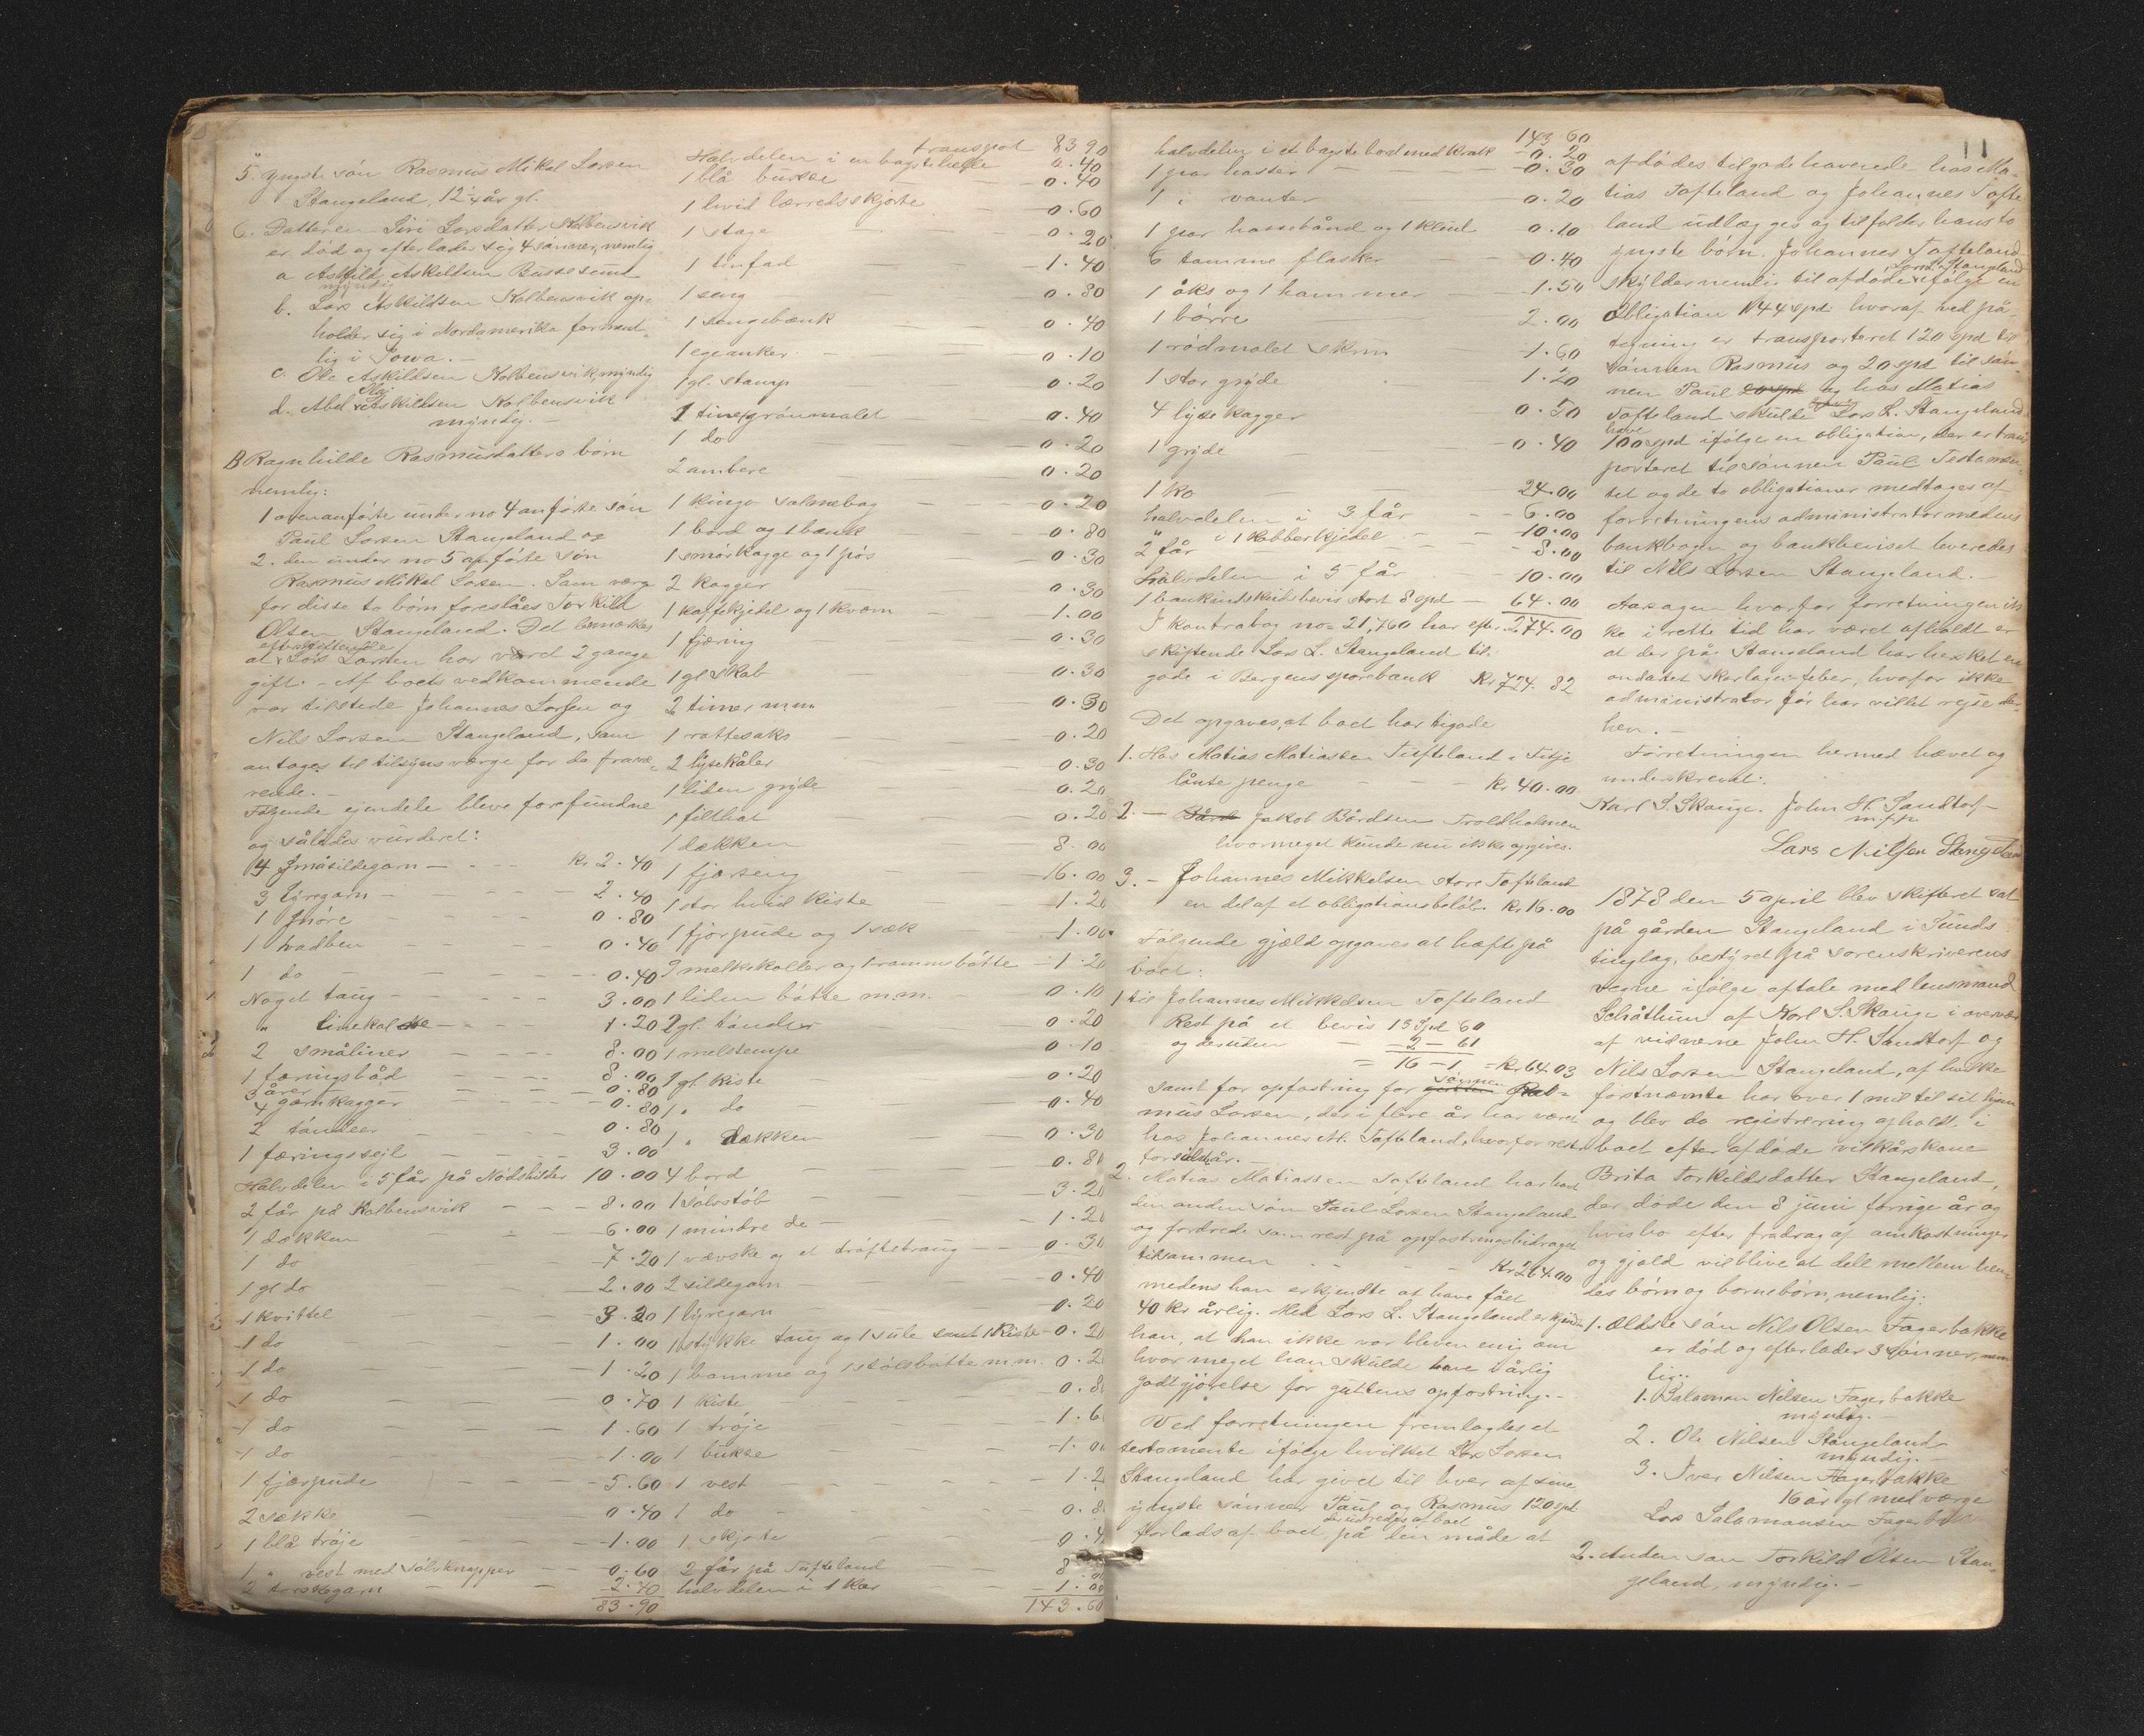 5. yngste sön Rasmus Mikal Larsen
Stangeland, 12¼ år gl.
6. Datteren Siri Larsdatter Kolbensvik
er död og efterlader sig 4 sönner, nemlig
a Askild Askildsen Bussesund
myndig
b. Lars Askildsen Kolbensvik op-
holder sig i Nordamerika forment-
lig i Iowa. -
c. Ole Askildsen Kolbensvik, myndig
d. Abel Askildsen Kolbensvik
myndig. -
B Ragnhilde Rasmusdatters börn
nemlig:
1 ovenanförte under no 4 anförte sön
Paul Larsen Stangeland og
2. den under no 5 anförte sön
Rasmus Mikal Larsen. Som værge
for disse to börn foreslåes Torkild
Olsen Stangeland. Det bemærkes
at efterskiftende Lars Larsen har været 2 gange
gift. - Af boets vedkommende
var tilstede Johannes Larsen og
Nils Larsen Stangeland, som
antages til tilsynsværge for de fravæ-
rende. -
Fölgende ejendele bleve forefundne
og således vurderet:
4 småsildegarn - kr. 2.40
3 lyregarn - 2.40
1 snöre 0.80
1 vadben 0.40
1 do 0.40
Noget taug - 3.00
" linekalke - 1.20
2 småliner 8.00
1 færingsbåd 8.00
3 årer 0.80
4 garnkagger 0.80
2 töndeer 0.80
1 færingssejl 3.00
Halvdelen i 5 får på Nödsholder 10.00
2 får på Kolbensvik - 8.00
1 dækken 6.00
1 do 7.20
1 gl do 2.00
1 kvittel 3.20
1 do 1.00
1 do 1.20
1 do 0.70
1 do 1.60
1 do 1.00
1 fjærpude 5.60
2 sække 0.40
1 blå tröje 1.00
1 " vest med sölvknapper 0.60
2 torskegarn 2.40
83.90
transport 83 90
Halvdelen i en bagstehelle 0.40
1 blå buxse 0.40
1 hvid lærredsskjorte 0.60
1 stage 0.20
1 tinfad 1.40
1 seng 0.80
1 sengebænk 0.40
1 egeanker 0.10
1 gl. stamp 0.20
1 tine/grönmalet 0.40
1 do 0.20
2 ambere 0.20
1 kingo salmebog 0.20
1 bord og 1 bænk 0.80
1 smörkagge og 1 pös 0.30
2 kagger 0.30
1 kaffekjedel og 1 kværn 1.00
1 fjæring 0.30
1 gl skab 0.30
2 tiner m.m. 0.30
1 rottesaks 0.20
2 lysekåler 0.30
1 liden gryde 0.20
1 filthat 0.20
1 dækken 8.00
1 fjærseng 16.00
1 stor hvid kiste 1.20
1 fjærpude og 1 sæk 1.00
9 melkekoller og 1 rammsbötte 1.20
1 liden bötte m.m. 0.10
2 gl. tönder 0.20
1 melstempe 0.10
1 gl. kiste 0.20
1 " do 0.40
1 " dækken 0.30
4 bord 0.80
1 sölvstöb 3.20
1 mindre do 1.20
1 vævske og et tröftetraug 0.30
2 sildegarn 0.40
1 lyregarn 0.20
1 stykke taug og 1 sule samt 1 kiste 0.20
1 bomme og 1 stölsbötte m.m. 0.2
1 kiste 0.8
1 tröje 1.6
1 bukse 1.00
1 vest 1.2
1 do 0.8
1 skjorte 0.4
2 får på Tofteland 8
halvdelen i 1 kar 1.00
143.60
143 60
halvdelen i et bagstebord med krak 0.20
1 par hasser 0.30
1 " vanter 0.20
1 par hassebånd og 1 klut 0.10
6 tomme flasker 0.40
1 öks og 1 hammer 1.50
1 börre 2.00
1 rödmalet skrin 1.60
1 stor gryde 1.20
4 lysekagger 0.50
1 gryde 0.40
1 ko 24.00
halvdelen i 3 får 6.00
" i 1 kobberkjedel 10.00
2 får 8.00
Halvdelen i 5 får 10.00
1 bankindskudsbevis stort 8 spd 64.00
I kontrabog no 21,760 har efter- 274.00
skiftende Lars L. Stangeland til-
gode i Bergens sparebank Kr 724.82
Det opgaves, at boet har tilgode
1. Hos Matias Matiassen Tufteland i Fitje
lånte penge Kr. 40.00
2. - Bård Jakob Bårdsen Troldholmen
hvormeget kunde nu ikke opgives.
3. - Johannes Mikkelsen store Tofteland
en del af et obligationsbelöb Kr. 16.00
Fölgende gjæld opgaves at hæfte på
boet:
1 til Johannes Mikkelsen Tofteland
Rest på et bevis 13 Spd 60
og desuden 2 - 61
= 16 - 1 = Kr 64.03
samt for opfostring for gutten sönnen Ras-
mus Larsen, der i flere år har været
hos Johannes M. Tofteland, hvorfor rest
for siste år.
2. Matias Matiassen Tofteland har havt
den anden sön Paul Larsen Stangeland
og fordrede som rest på opfostringsbidraget
tilsammen Kr 264.00
medens han erkjendte at have fået
40 kr årlig. Med Lars L. Stangeland erkjendte
han, at han ikke var bleven enig om
hvormeget han skulde have i årlig
godtgjörelse for guttens opfostring. -
Ved forretningen fremlagdes et
testamente ifölge hvilket Lars Larsen
Stangeland har givet til hver af sine
yngste sönner Paul og Rasmus 120 spd
forlods af boet, der udredes af boet på den måde at
11
afdödes tilgodehavende hos Ma-
tias Tofteland og Johannes Tofte
land udlægges og tilfalder hans to
yngste börn. Johannes Tofteland
skylder nemlig til afdöde Lars L. Stangeland ifölge en
Obligation 144 spd. hvoraf ved på-
tegning er transporteret 120 spd til
sönnen Rasmus og 20 spd til sön-
nen Paul 20 spd og hos Matias
Tofteland skulde Lars L. Stangeland
have 100 spd ifölge en obligation, der er trans
porteret til sönnen Paul Testamen-
tet og de to obligationer medtoges af
forretningens administrator medens
bankbogen og bankbeviset leveredes
til Nils Larsen Stangeland. -
Aarsagen hvorfor forretningen ik-
ke i rette tid har været afholdt er
at der på Stangeland har hersket en
ondartet skarlagensfeber, hvorfor ikke
administrator för har villet rejse der-
hen. -
Forretningen hermed hævet og
underskrevet:
Karl S. Skauge. John H. Sandtorf
m.f.p
Lars Nilsen Stangeland
1878 den 5 april blev skifteret sat
på gården Stangeland i Sunds
tinglag, bestyret på sorenskriverens
vegne ifölge aftale med lensmand
Schåthun af Karl S. Skauge i overvær
af vidnerne John H. Sandtorf og
Nils Larsen Stangeland, af hvilke
förstnævnte har over 1 mil til sit hjem
og blev da registrering afholdt i
boet efter afdöde vilkårskone
Brita Torkildsdatter Stangeland,
der döde den 8 juni forrige år og
hvis bo efter fradrag af omkostninger
og gjæld vil blive at dele mellem hen-
des börn og börnebörn, nemlig:
1. ældste sön Nils Olsen Fagerbakke
er död og efterlader 3 sönner, nem
lig:
1. Salamon Nilsen Fagerbakke
myndig. -
2. Ole Nilsen Stangeland
myndig. -
3. Iver Nilsen Fagerbakke
16 år gl med værge
Lars Salamonsen Fagerbakke
2. Anden sön Torkild Olsen Stan-
geland, myndig. -